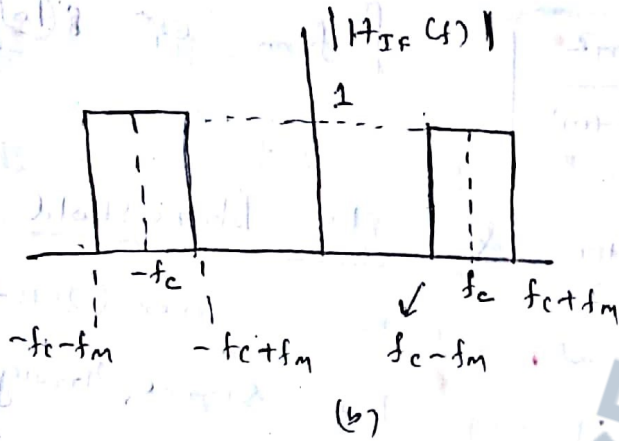 |H_IF (f)|
1
-fc fc fc+fm
-fc-fm -fc+fm fc-fm
(b)